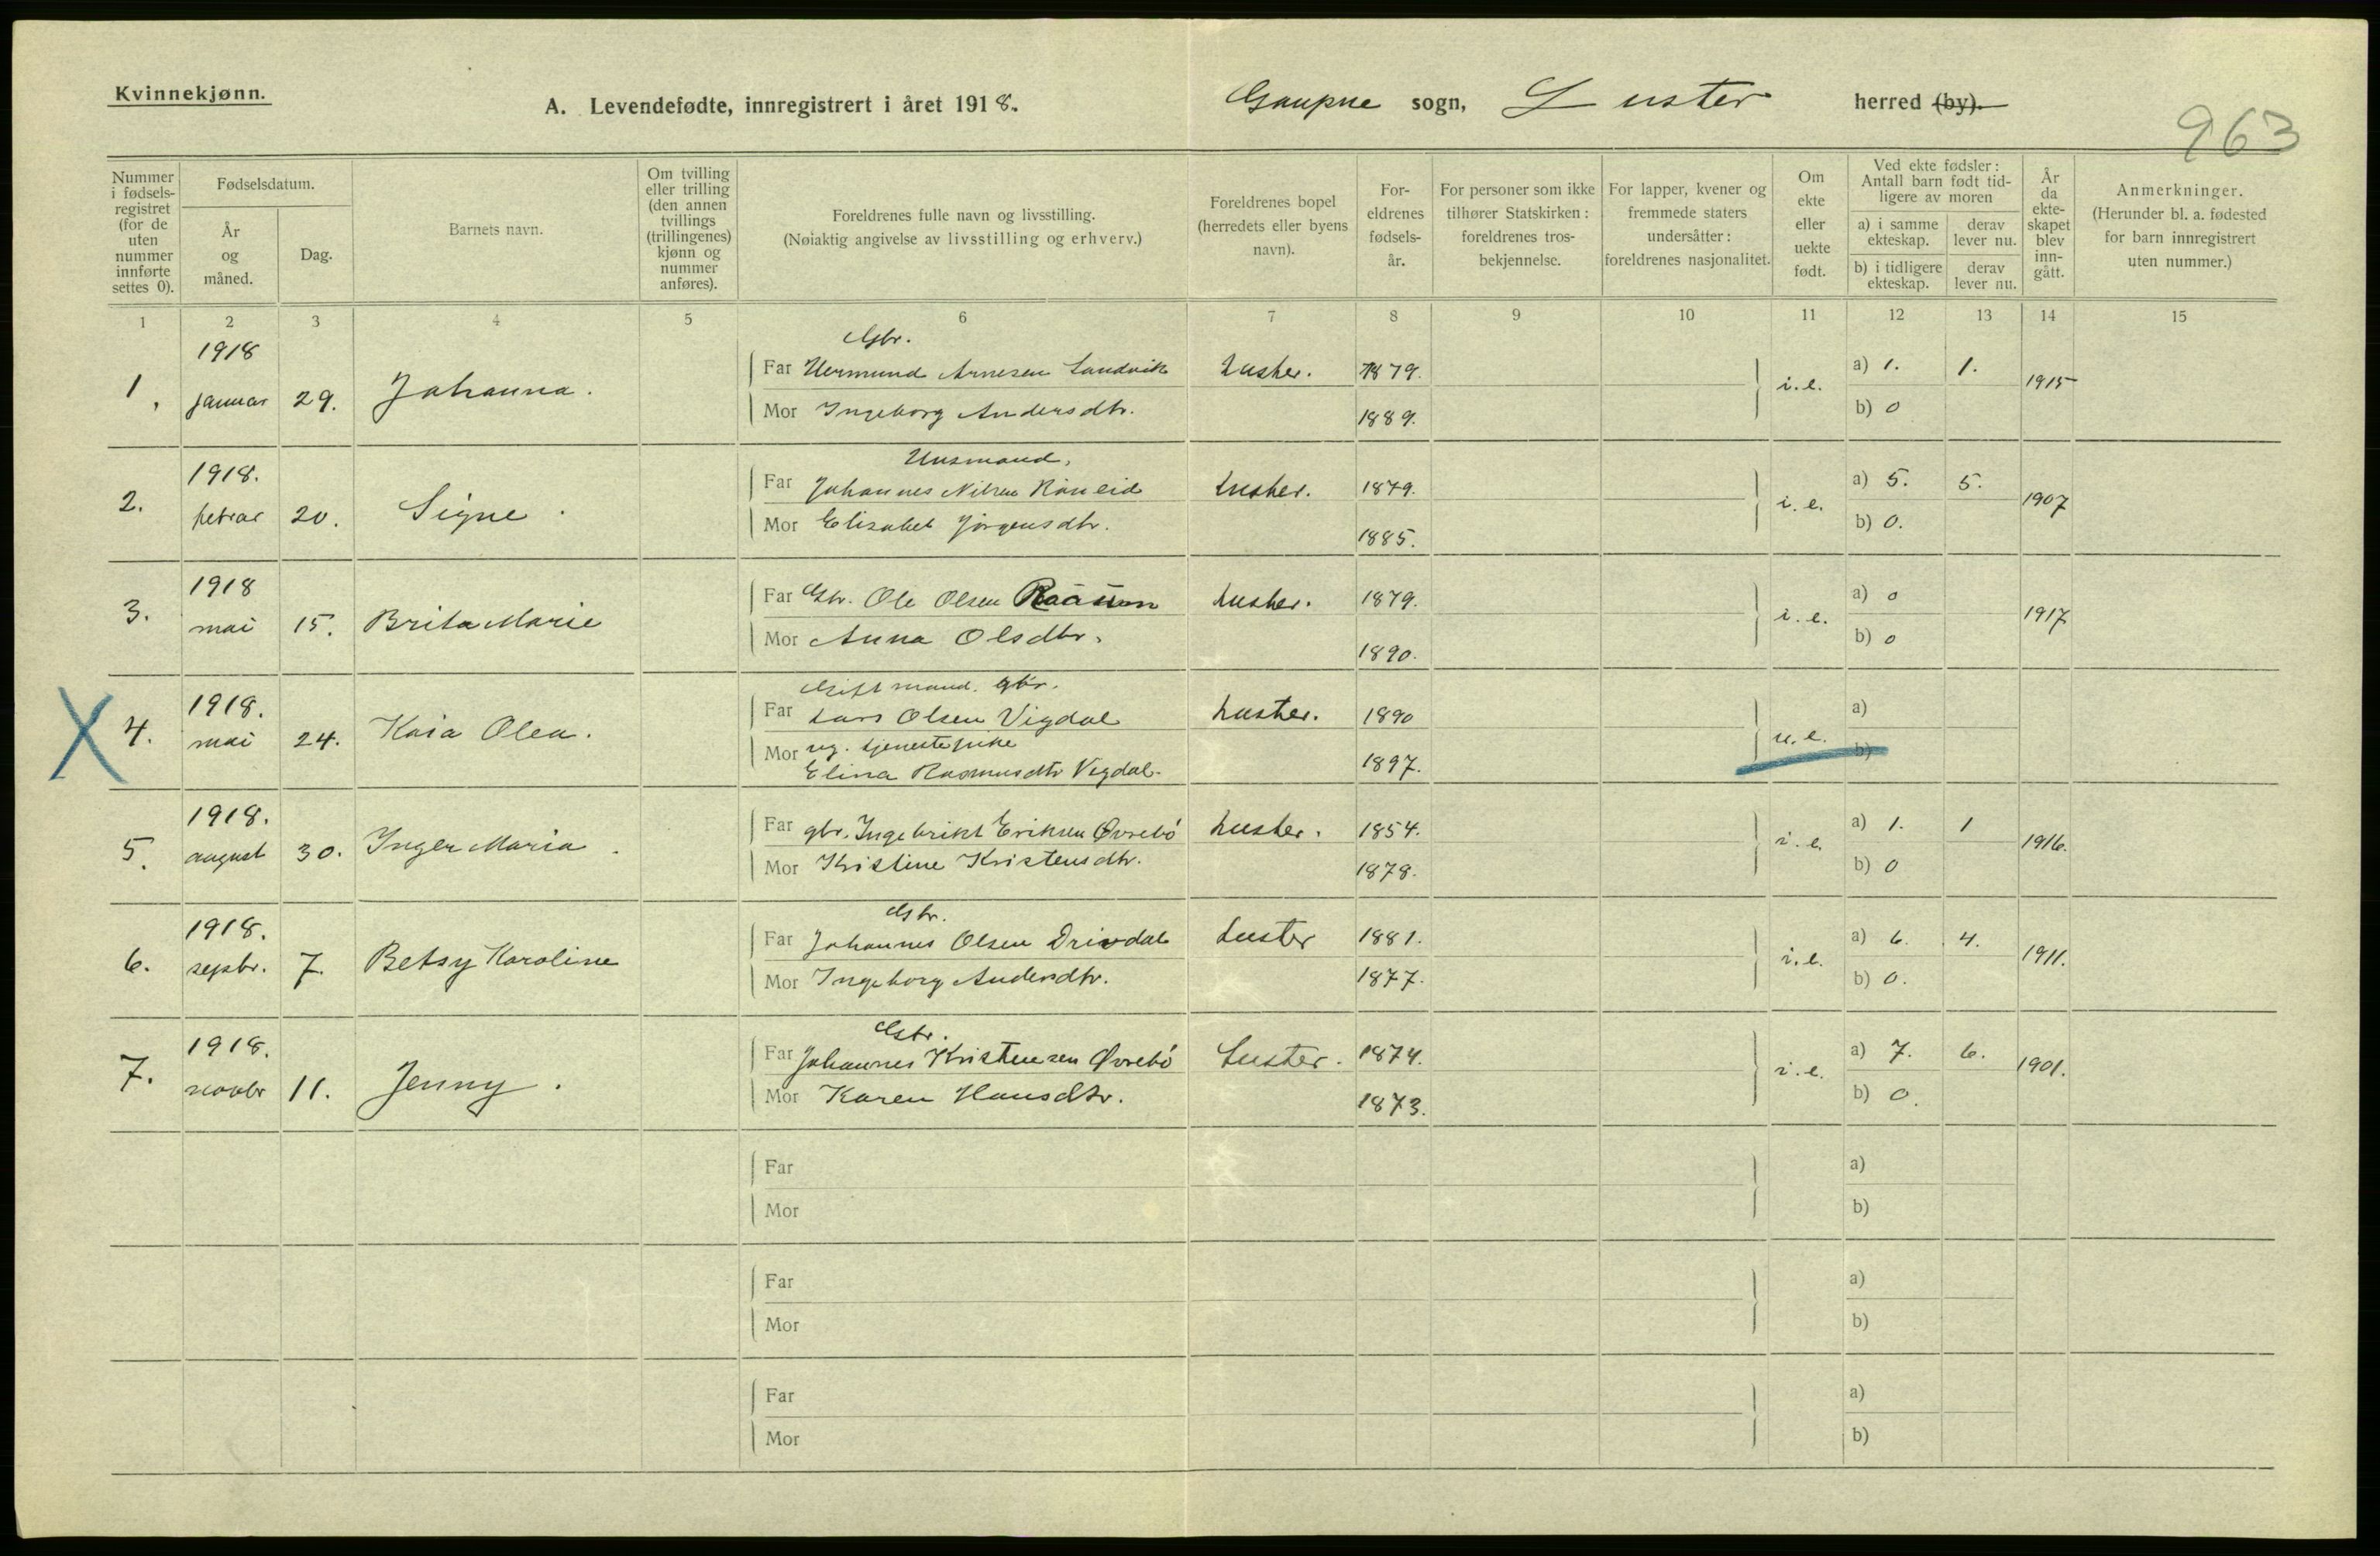 Kvinnekjønn.
A. Levendefødte, innregistrert i året 1918.
Gaupne sogn, Luster herred (by).
963
Nummer i fødselsregistret (for de uten nummer innførte settes 0).
Fødselsdatum.
År og måned.
Dag.
Barnets navn.
Om tvilling eller trilling (den annen tvillings (trillingenes) kjønn og nummer anføres).
Foreldrenes fulle navn og livsstilling.
(Nøiaktig angivelse av livsstilling og erhverv.)
Foreldrenes bopel (herredets eller byens navn).
Foreldrenes fødselsår.
For personer som ikke tilhører Statskirken: foreldrenes trosbekjennelse.
For lapper, kvener og fremmede staters undersåtter: foreldrenes nasjonalitet.
Om ekte eller uekte født.
Ved ekte fødsler: Antall barn født tidligere av moren
a) i samme ekteskap.
derav lever nu.
b) i tidligere ekteskap.
derav lever nu.
År da ekteskapet blev inngått.
Anmerkninger.
(Herunder bl. a. fødested for barn innregistrert uten nummer.)
1 2 3 4 5 6 7 8 9 10 11 12 13 14 15
Gbr.
1. 1918 januar 29. Johanna. Far Hermund Arnesen Sandvik Luster. 1879. i.e. a) 1. 1. 1915
Mor Ingeborg Andersdtr. 1889. b) 0
Husmand.
2. 1918. febrar 20. Signe. Far Johannes Nilsen Røneid Luster. 1879. i.e. a) 5. 5. 1907
Mor Elisabet Jørgensdtr. 1885. b) 0.
3. 1918 mai 15. Brita Marie Far Gbr. Ole Olsen Luster. 1879. i.e. a) 0 1917
Mor Anna Olsdtr. 1890. b) 0
Gift mand. gbr.
X 4. 1918. mai 24. Kaia Olea. Far Lars Olsen Vigdal Luster. 1890 u.e. a)
Mor ug. tjenestepike
Elina Rasmusdtr Vigdal. 1897. b)
5. 1918. august 30. Inger Maria. Far gbr. Ingebrikt Eriksen Øvrebö Luster. 1854. i.e. a) 1. 1 1916.
Mor Kristine Kristensdtr. 1878. b) 0
Gbr.
6. 1918. sepbr. 7. Betsy Karoline Far Johannes Olsen Drivdal Luster 1881. i.e. a) 6. 4. 1911.
Mor Ingeborg Andersdtr. 1877. b) 0.
Gbr.
7. 1918. novbr 11. Jenny. Far Johannes Kristensen Øvrebö Luster. 1874. i.e. a) 7. 6. 1901.
Mor Karen Hansdtr. 1873. b) 0.
Far a)
Mor b)
Far a)
Mor b)
Far a)
Mor b)